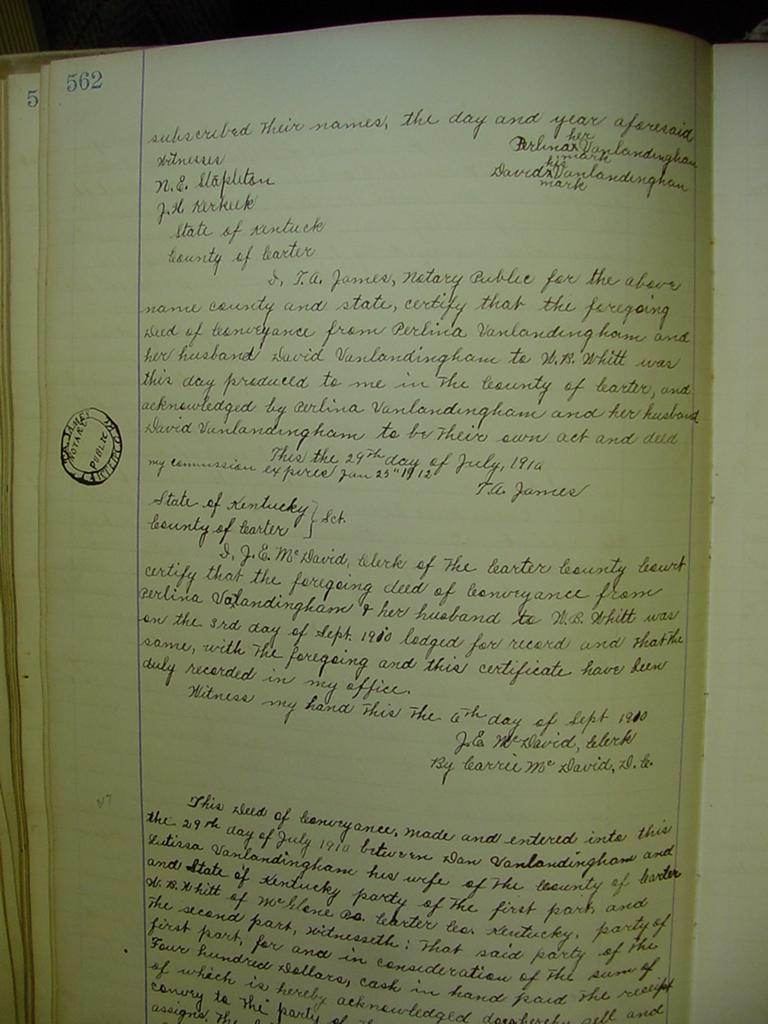 5
562
subscribed their names, the day and year aforesaid
her
Perlina x Vanlandingham
mark
his
David x Vanlandingham
mark
Witnesses
N. E. Stapleton
J. H.
State of Kentuck
County of Carter
I, T. A. James, Notary Public for the above
name county and state, certify that the foregoing
Deed of Conveyance from Perlina Vanlandingham and
her husband David Vanlandingham to W. B. Whitt was
this day produced to me in the County of Carter, and
acknowledged by Perlina Vanlandingham and her husband
David Vanlandingham to be their own act and deed
This the 29th day of July, 1910
my commission expires Jan 25th 1912
T. A. James
JAMES
NOTARY
PUBLIC
State of Kentucky } Sct.
County of Carter
I, J. E. McDavid, Clerk of the Carter County Court
certify that the foregoing deed of Conveyance from
Perlina Valandingham & her husband to W. B. Whitt was
on the 3rd day of Sept. 1910 lodged for record and that the
same, with the foregoing and this certificate have been
duly recorded in my office.
Witness my hand this the 6th day of Sept 1910
J. E. McDavid, Clerk
By Carrie McDavid, D. C.
This Deed of Conveyance, made and entered into this
the 29th day of July 1910 between Dan Vanlandingham and
Lutissa Vanlandingham his wife of the County of Carter
and State of Kentucky party of the first part, and
W. B. Whitt of McGlone Po. Carter Co. Kentucky, party of
the second part, witnesseth: That said party of the
first part, for and in consideration of the sum of
Four hundred Dollars, cash in hand paid the receipt
of which is hereby acknowledged do hereby sell and
convey to the party of the
assigns, the